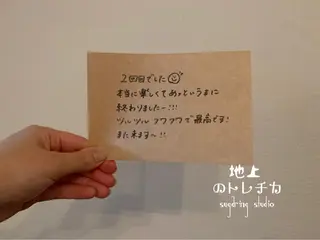 2回目でした☺
本当に楽しくてあっというまに
終わりましたー!!!
ツルツル フワフワで最高です!
また来ますー!!
地上
のトレチカ
sugaring studio